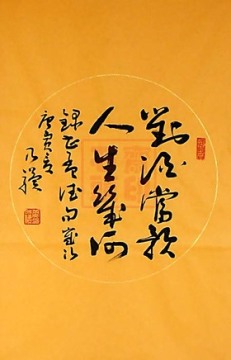 對酒當歌
人生幾何
錄曹孟德句歲次
庚寅